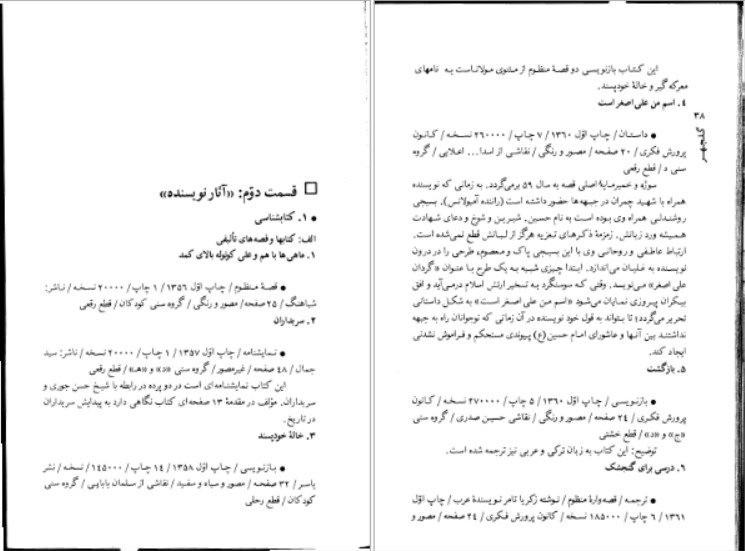 □ قسمت دوّم: «آثار نویسنده»
● ۱. کتابشناسی
الف: کتابها و قصه‌های تألیفی
۱. ماهی‌ها با هم و علی کوتوله بالای کمد
● قصهٔ منظوم / چاپ اوّل ۱۳۵۶ / ۱ چاپ / ۲۰۰۰۰ نسخه / ناشر:
شباهنگ / ۲۵ صفحه / مصور و رنگی / گروه سنی کودکان / قطع رقعی
۲. سربداران
● نمایشنامه / چاپ اوّل ۱۳۵۷ / ۱ چاپ / ۲۰۰۰۰ نسخه / ناشر: سید
جمال / ۴۸ صفحه / غیرمصور / گروه سنی «د» و «هـ» / قطع رقعی
این کتاب نمایشنامه‌ای است در دو پرده در رابطه با شیخ حسن جوری و
سربداران. مؤلف در مقدمهٔ ۱۳ صفحه‌ای کتاب نگاهی دارد به پیدایش سربداران
در تاریخ.
۳. خالهٔ خودپسند
● بازنویسی / چاپ اوّل ۱۳۵۸ / ۱۴ چاپ / ۱۴۵۰۰۰ / نسخه / نشر
یاسر / ۳۲ صفحه / مصور و سیاه و سفید / نقاشی از سلمان بابایی / گروه سنی
کودکان / قطع رحلی
۳۸
گلچهر
این کتاب بازنویسی دو قصهٔ منظوم از مثنوی مولاناست به نامهای
معرکه گیر و خالهٔ خودپسند.
۴. اسم من علی اصغر است
● داستان / چاپ اوّل ۱۳۶۰ / ۷ چاپ / ۲۶۰۰۰۰ نسخه / کانون
پرورش فکری / ۲۰ صفحه / مصور و رنگی / نقاشی از اسدا... اعلایی / گروه
سنی د / قطع رقعی
سوژه و خمیرمایهٔ اصلی قصه به سال ۵۹ برمی‌گردد. به زمانی که نویسنده
همراه با شهید چمران در جبهه‌ها حضور داشته است (راننده آمبولانس). بسیجی
روشندلی همراه وی بوده است به نام حسین. شیرین و شوخ و دعای شهادت
همیشه ورد زبانش. زمزمهٔ ذکرهای تعزیه هرگز از لبانش قطع نمی‌شده است.
ارتباط عاطفی و روحانی وی با این بسیجی پاک و معصوم، طرحی را در درون
نویسنده به غلیان می‌اندازد. ابتدا چیزی شبیه به یک طرح با عنوان «گردان
علی اصغر» می‌نویسد. وقتی که سوسنگرد به تسخیر ارتش اسلام درمی‌آید و افق
بیکران پیروزی نمایان می‌شود «اسم من علی اصغر است» به شکل داستانی
تحریر می‌گردد؛ تا بتواند به قول خود نویسنده در آن زمانی که نوجوانان راه به جبهه
نداشتند بین آنها و عاشورای امام حسین (ع) پیوندی مستحکم و فراموش نشدنی
ایجاد کند.
۵. بازگشت
● بازنویسی / چاپ اوّل ۱۳۶۰ / ۵ چاپ / ۲۷۰۰۰۰ نسخه / کانون
پرورش فکری / ۲۴ صفحه / مصور و رنگی / نقاشی حسین صدری / گروه سنی
«ج» و «د» / قطع خشتی
توضیح: این کتاب به زبان ترکی و عربی نیز ترجمه شده است.
۶. درسی برای گنجشک
● ترجمه / قصه‌وارهٔ منظوم / نوشته زکریا تامر نویسندهٔ عرب / چاپ اوّل
۱۳۶۱ / ۶ چاپ / ۱۸۵۰۰۰ نسخه / کانون پرورش فکری / ۲۴ صفحه / مصور و